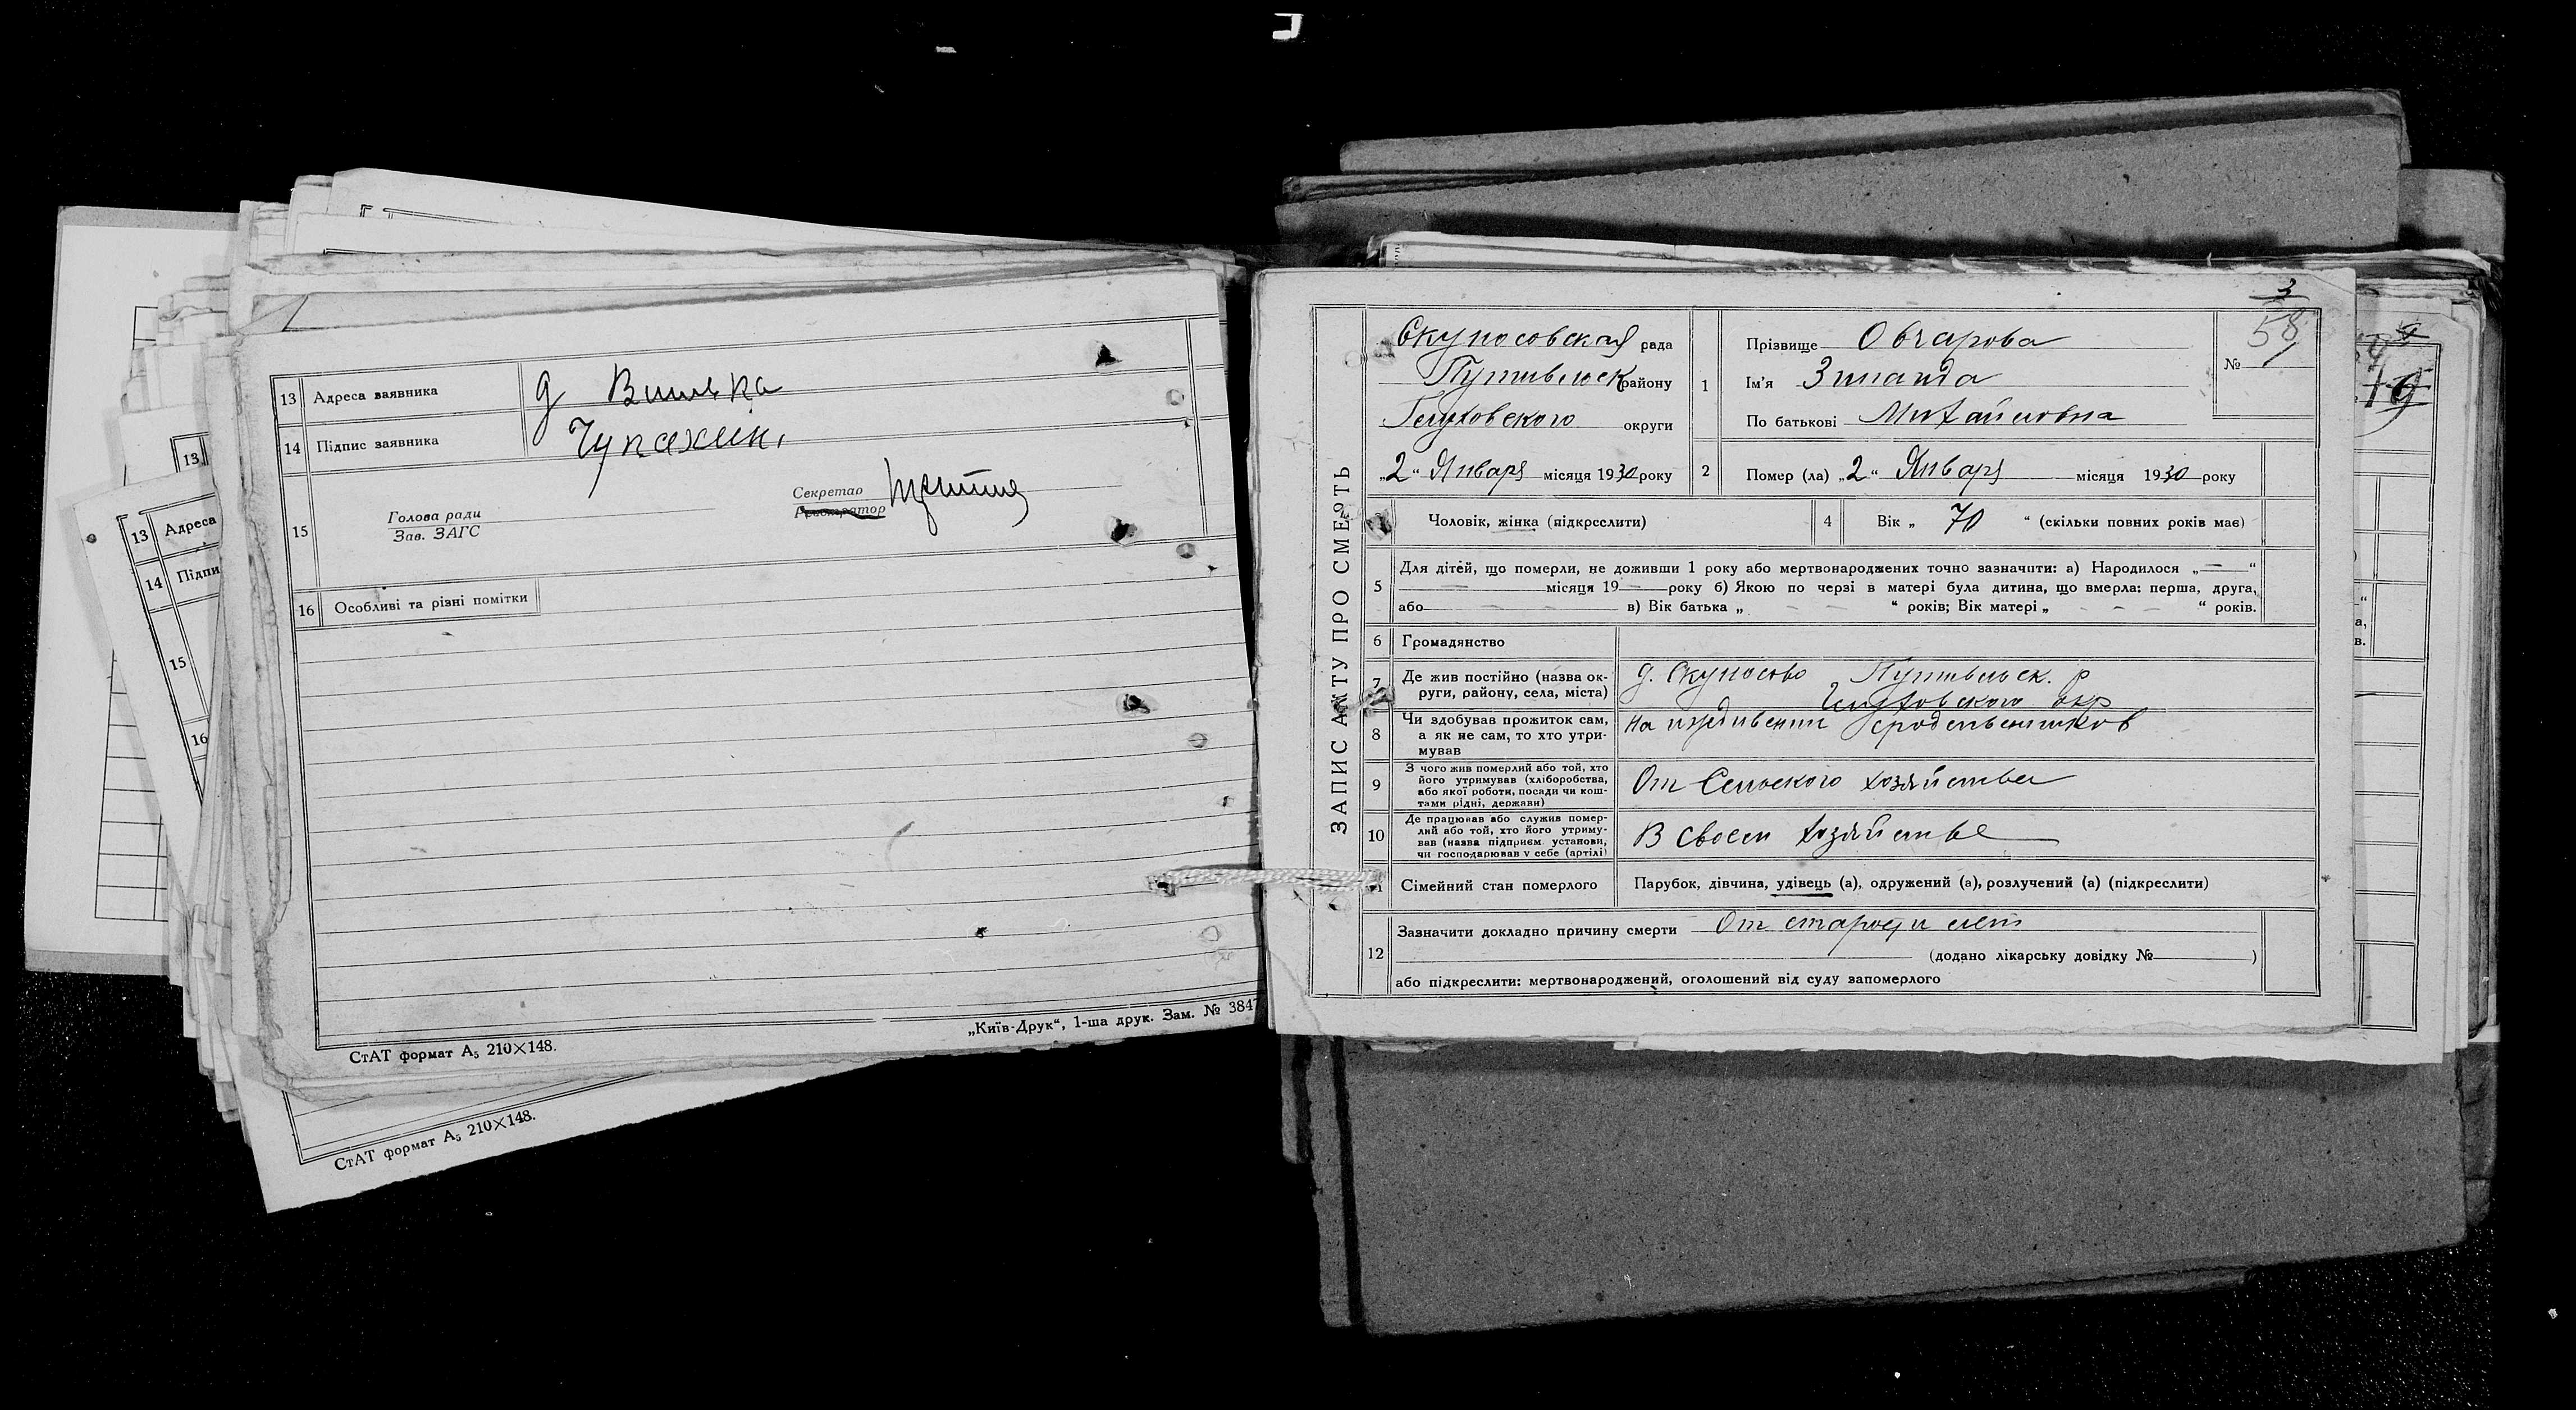 13 Адреса заявника д Вишька
14 Підпис заявника Чупахин
15 Голова ради
Зав. ЗАГС
Секретар
Реєстратор
16 Особливі та різні помітки
СтАТ формат А5 210×148.
„Київ-Друк“, 1-ша друк. Зам. № 384
13 Адреса
14 Підпи
15
16
13
СтАТ формат А5 210×148.
3
58
ЗАПИС АКТУ ПРО СМЕРТЬ
Скуносовская рада
Путивльск району
Глуховского округи
„2“ Января місяця 1930 року
1 Прізвище Овчарова
Ім'я Зинаида
По батькові Михайловна
№ 1
2 Помер (ла) „2“ Января місяця 1930 року
Чоловік, жінка (підкреслити)
4 Вік „ 70 “ (скільки повних років має)
5 Для дітей, що померли, не доживши 1 року або мертвонароджених точно зазначити: а) Народилося „ — “
місяця 19 — року б) Якою по черзі в матері була дитина, що вмерла: перша, друга,
або — в) Вік батька „ — “ років; Вік матері „ — “ років.
6 Громадянство
7 Де жив постійно (назва ок-
руги, району, села, міста)
д. Скуносово Путивльск. р
Глуховского окр
8 Чи здобував прожиток сам,
а як не сам, то хто утри-
мував
На иждивении сродственников
9 З чого жив померлий або той, хто
його утримував (хліборобства,
або якої роботи, посади чи кош-
тами рідні, держави)
От Сельского хозяйства
10 Де працював або служив помер-
лий або той, хто його утриму-
вав (назва підприєм. установи,
чи господарював у себе (артілі)
В своем хозяйстве
11 Сімейний стан померлого Парубок, дівчина, удівець (а), одружений (а), розлучений (а) (підкреслити)
12 Зазначити докладно причину смерти От старости лет
(додано лікарську довідку № )
або підкреслити: мертвонароджений, оголошений від суду запомерлого